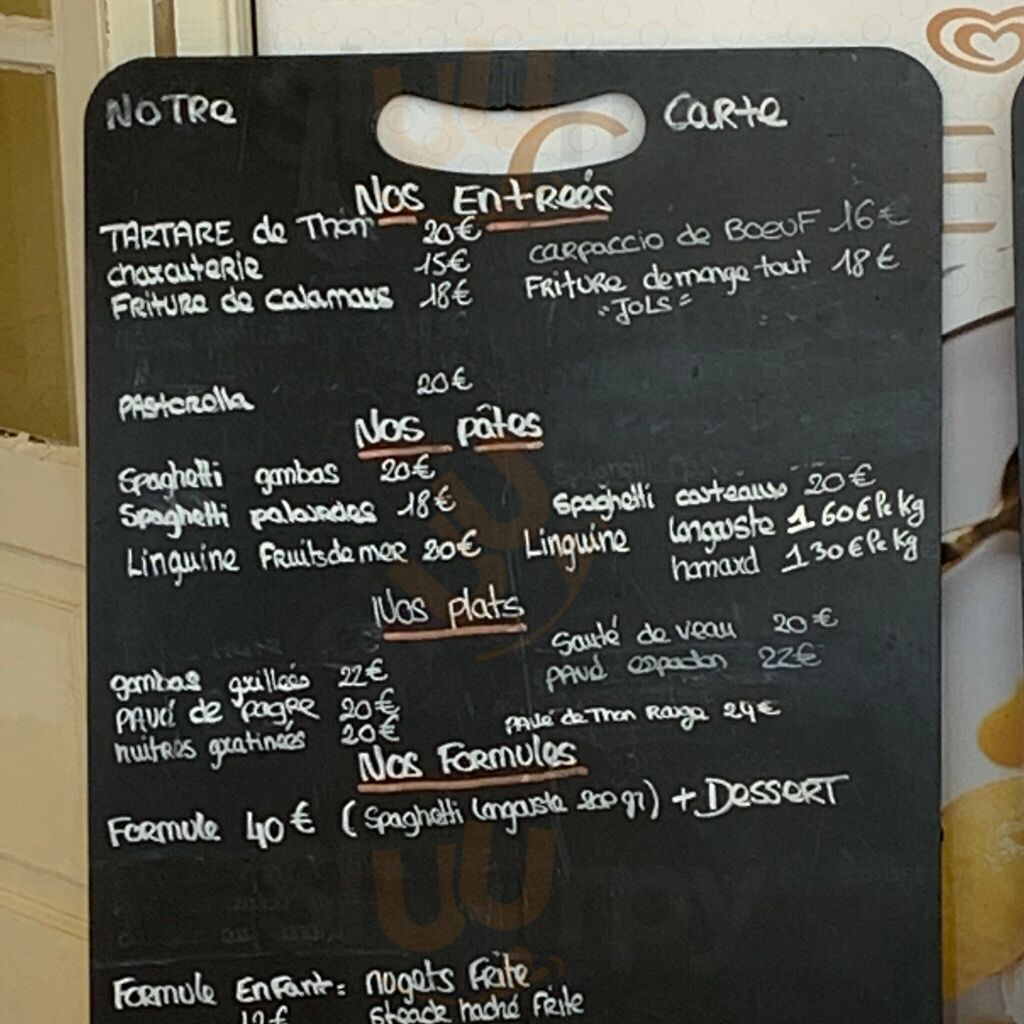 NOTRE CARTE
Nos Entreés
TARTARE de Thon 20€
charcuterie 15€
FRITURE de calamars 18€
carpaccio de BOEUF 16€
FRITURE demange tout 18€
"JOLS"
PASTEROLLA 20€
Nos pâtes
Spaghetti gambas 20€
Spaghetti palourdes 18€
Linguine Fruits de mer 20€
Spaghetti couteaux 20€
Linguine langouste 160€ le kg
homard 130€ le kg
Nos plats
gambas grillées 22€
PAVÉ de pagre 20€
huitres gratinées 20€
Sauté de veau 20€
PAVÉ espadon 22€
PAVÉ de Thon Rouge 24€
Nos Formules
FORMULE 40€ (Spaghetti langouste 200gr) + DESSERT
FORMULE ENFANT: nugets Frite
12€ steack haché Frite